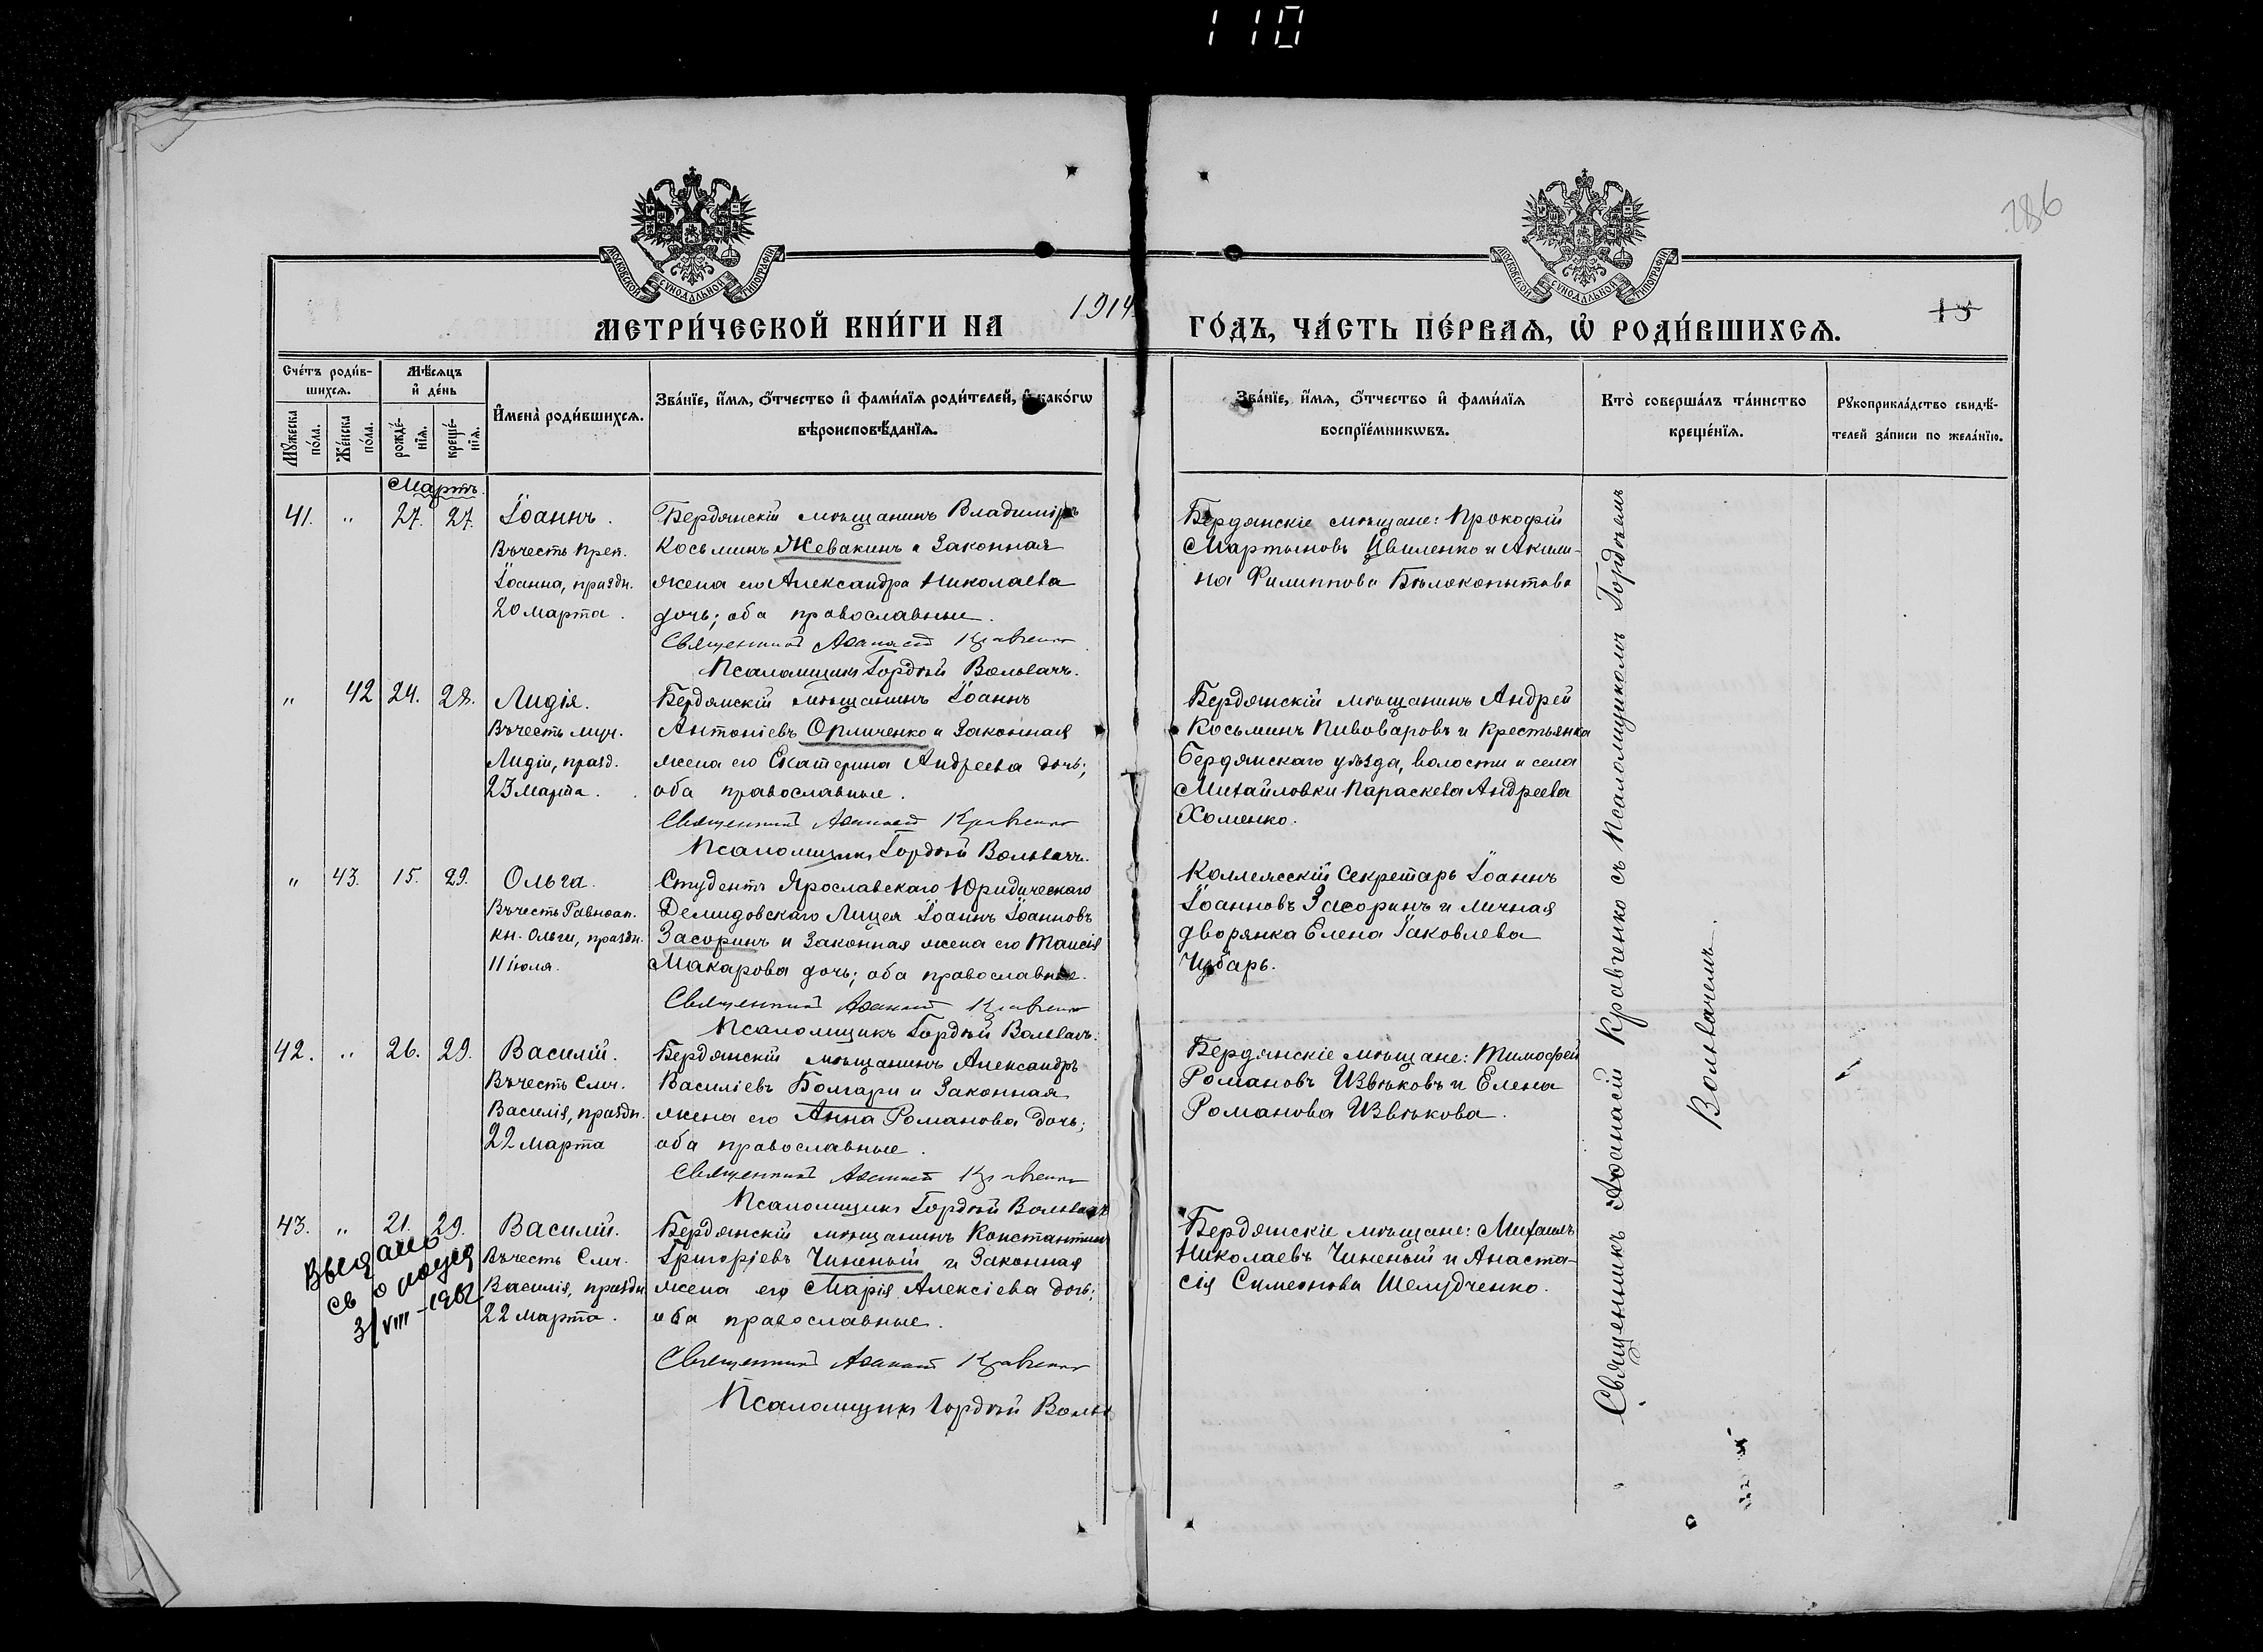 110
286
МОСКОВСКОЙ СѴНОДАЛЬНОЙ ТИПОГРАФІИ
МОСКОВСКОЙ СѴНОДАЛЬНОЙ ТИПОГРАФІИ
МЕТРИ́ЧЕСКОЙ КНИ́ГИ НА 1914
ГО́ДЪ, ЧА́СТЬ ПЕ́РВАЯ, Ѡ҆ РОДИ́ВШИХСЯ.
15
Сче́тъ роди́в-
шихся.
Мѣ́сяцъ
и҆ де́нь
Мꙋ́жеска
по́ла.
Же́нска
по́ла.
рожде́-
нїя.
креще́-
нїя.
И҆мена̀ роди́вшихся.
Зва́нїе, и҆́мя, о҆́тчество и҆ фами́лїя роди́телей, и҆ како́гѡ
вѣроисповѣ́данїя.
Зва́нїе, и҆́мя, о҆́тчество и҆ фами́лїя
воспрїе́мникѡвъ.
Кто̀ соверша́лъ та́инство
креще́нїя.
Рꙋкоприкла́дство свидѣ́-
телей за́писи по жела́нїю.
Мартъ.
41. " 27. 27. Іоаннъ.
Въ честь преп.
Іоанна, праздн.
20 марта.
Бердянскій мѣщанинъ Владиміръ
Косьминъ Жевакинъ и законная
жена его Александра Николаева
дочь; оба православные.
Священникъ Аѳанасій Кравченко
Псаломщикъ Гордѣй Вольвачъ.
Бердянскіе мѣщане: Прокофій
Мартыновъ Цвиленко и Акили-
на Филиппова Бѣлокопытова
" 42 24. 28. Лидія.
Въ честь муч.
Лидіи, празд.
23 марта.
Бердянскій мѣщанинъ Іоаннъ
Антоніевъ Орличенко и законная
жена его Екатерина Андреева дочь;
оба православные.
Священникъ Аѳанасій Кравченко
Псаломщикъ Гордѣй Вольвачъ.
Бердянскій мѣщанинъ Андрей
Косьминъ Пивоваровъ и крестьянка
Бердянскаго уѣзда, волости и села
Михайловки Параскева Андреева
Хоменко.
" 43. 15. 29. Ольга.
Въ честь Равноап.
кн. Ольги, праздн.
11 іюля.
Студентъ Ярославскаго Юридическаго
Демидовскаго Лицея Іоаннъ Іоанновъ
Засоринъ и законная жена его Таисія
Макарова дочь; оба православные.
Священникъ Аѳанасій Кравченко
Псаломщикъ Гордѣй Вольвачъ.
Коллежскій Секретарь Іоаннъ
Іоанновъ Засоринъ и личная
дворянка Елена Іаковлева
Чубарь.
42. " 26. 29. Василій.
Въ честь Смч.
Василія, праздн.
22 марта
Бердянскій мѣщанинъ Александръ
Василіевъ Болгари и законная
жена его Анна Романова дочь;
оба православные.
Священникъ Аѳанасій Кравченко
Псаломщикъ Гордѣй Вольвачъ
Бердянскіе мѣщане: Тимофей
Романовъ Извѣковъ и Елена
Романова Извѣкова.
43. " 21. 29. Василій.
Въ честь Смч.
Василія, праздн
22 марта.
Выдано
св о рожд
3/VIII-1962
Бердянскій мѣщанинъ Константинъ
Григоріевъ Чиненый и законная
жена его Марія Алексіева дочь;
оба православные.
Священникъ Аѳанасій Кравченко
Псаломщикъ Гордѣй Вольв
Бердянскіе мѣщане: Михаилъ
Николаевъ Чиненый и Анаста-
сія Симеонова Шелудченко.
Священникъ Аѳанасій Кравченко съ Псаломщикомъ Гордѣемъ
Вольвачемъ.